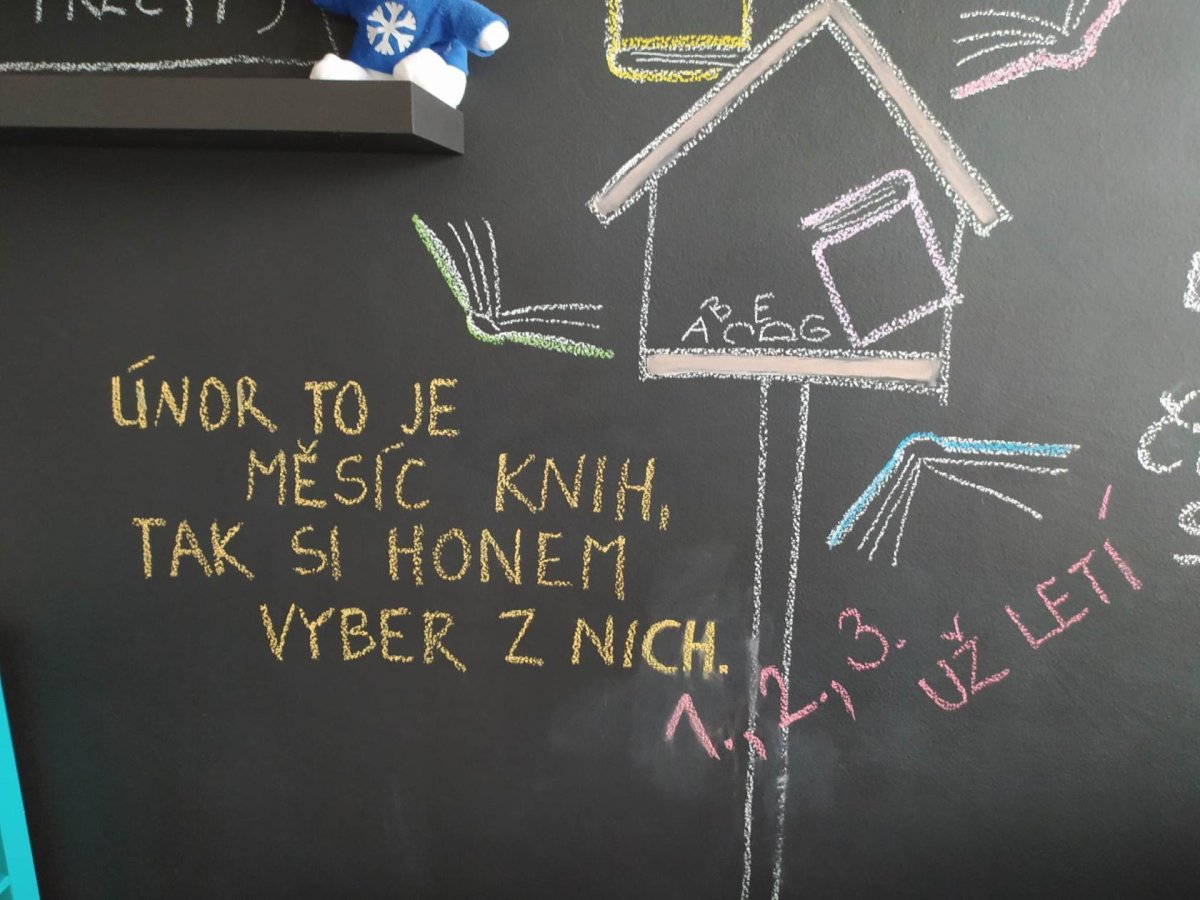 A B C E D G
ÚNOR TO JE
MĚSÍC KNIH,
TAK SI HONEM
VYBER Z NICH.
1., 2., 3.
UŽ LETÍ